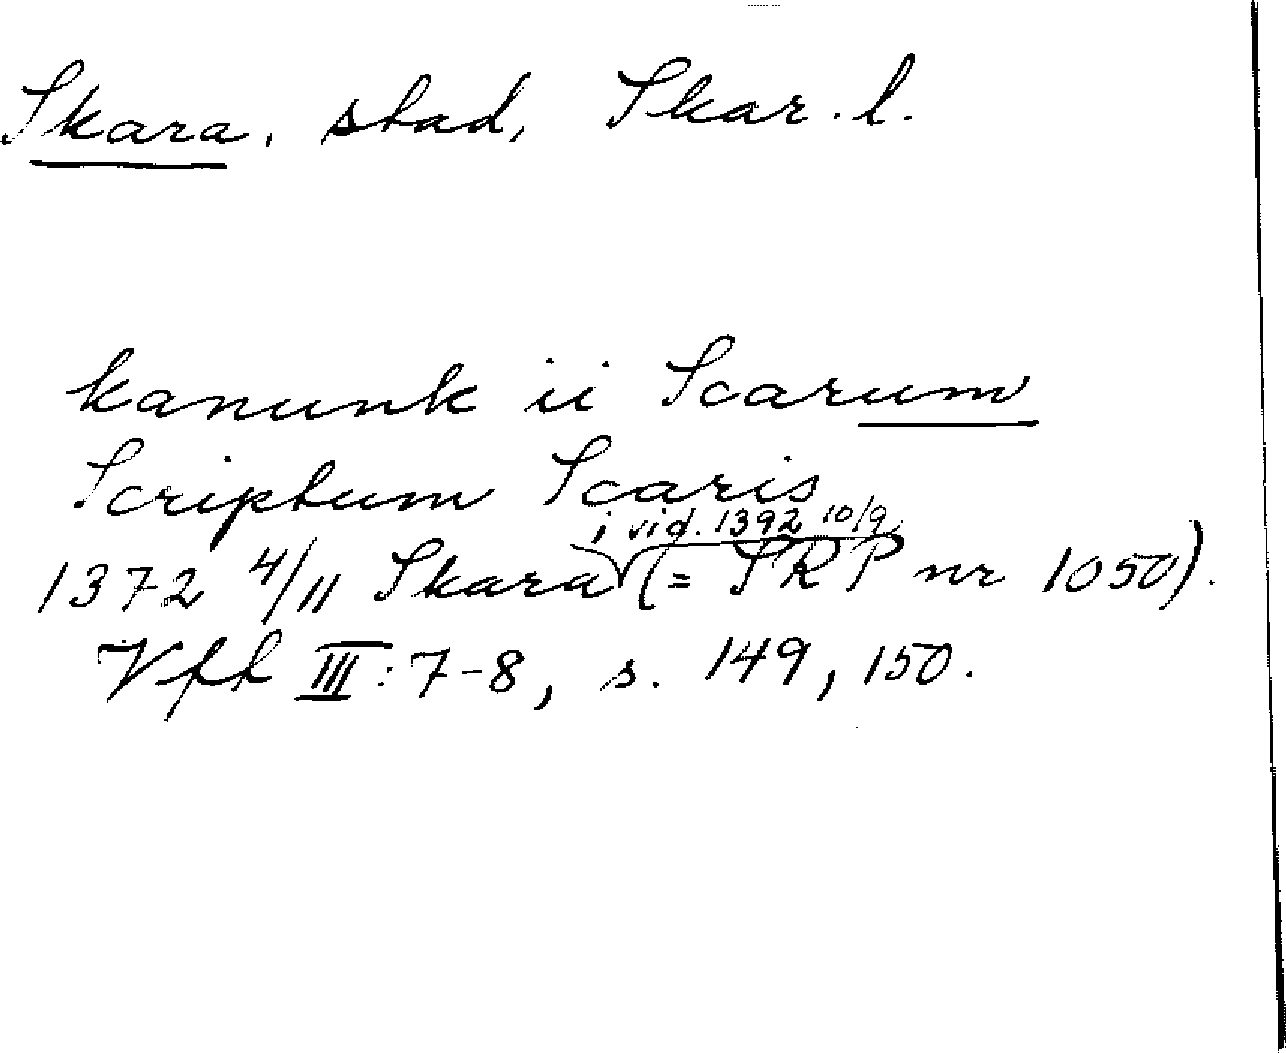 Skara, stad, Skar. l.
kanunk ii Scarum
Scriptum Scaris
i vid. 1392 10/9
1372 4/11 Skara (= SRP nr 1050).
Vfft III: 7-8, s. 149, 150.